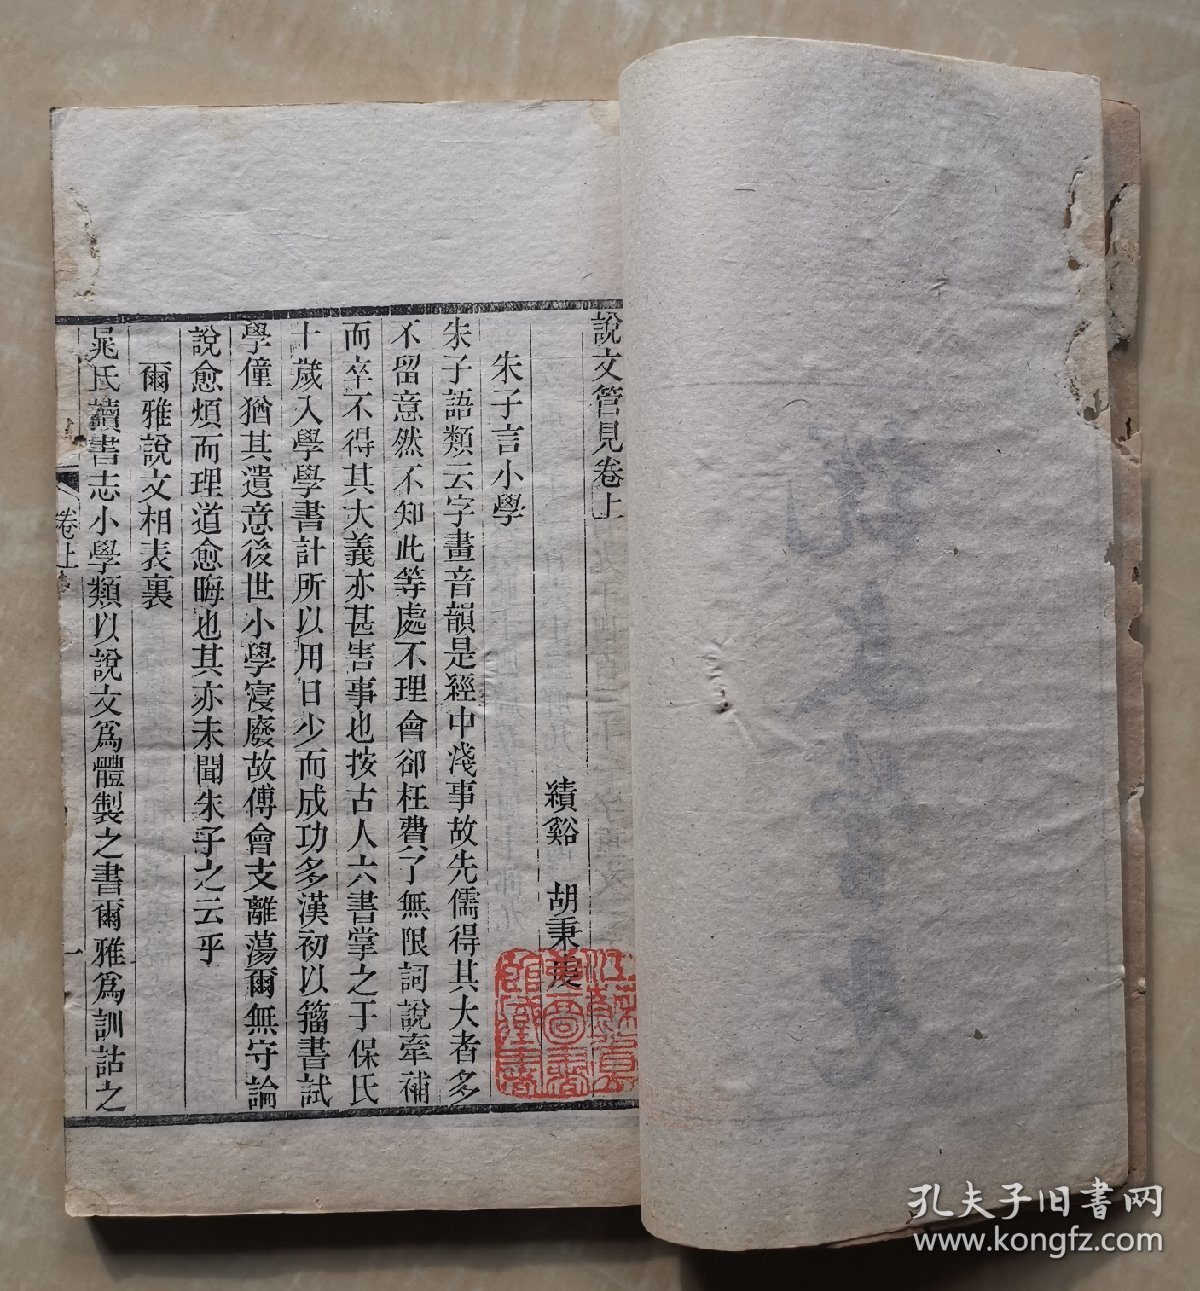 說文管見卷上
績谿 胡秉虔
朱子言小學
朱子語類云字畫音韻是經中淺事故先儒得其大者多
不留意然不知此等處不理會卻枉費了無限詞說牽補
而卒不得其大義亦甚害事也按古人六書掌之于保氏
十歲入學學書計所以用日少而成功多漢初以籀書試
學僮猶其遺意後世小學寖廢故傅會支離蕩爾無守論
說愈煩而理道愈晦也其亦未聞朱子之云乎
爾雅說文相表裏
晁氏讀書志小學類以說文爲體製之書爾雅爲訓詁之
卷上
一
孔夫子旧书网
www.kongfz.com